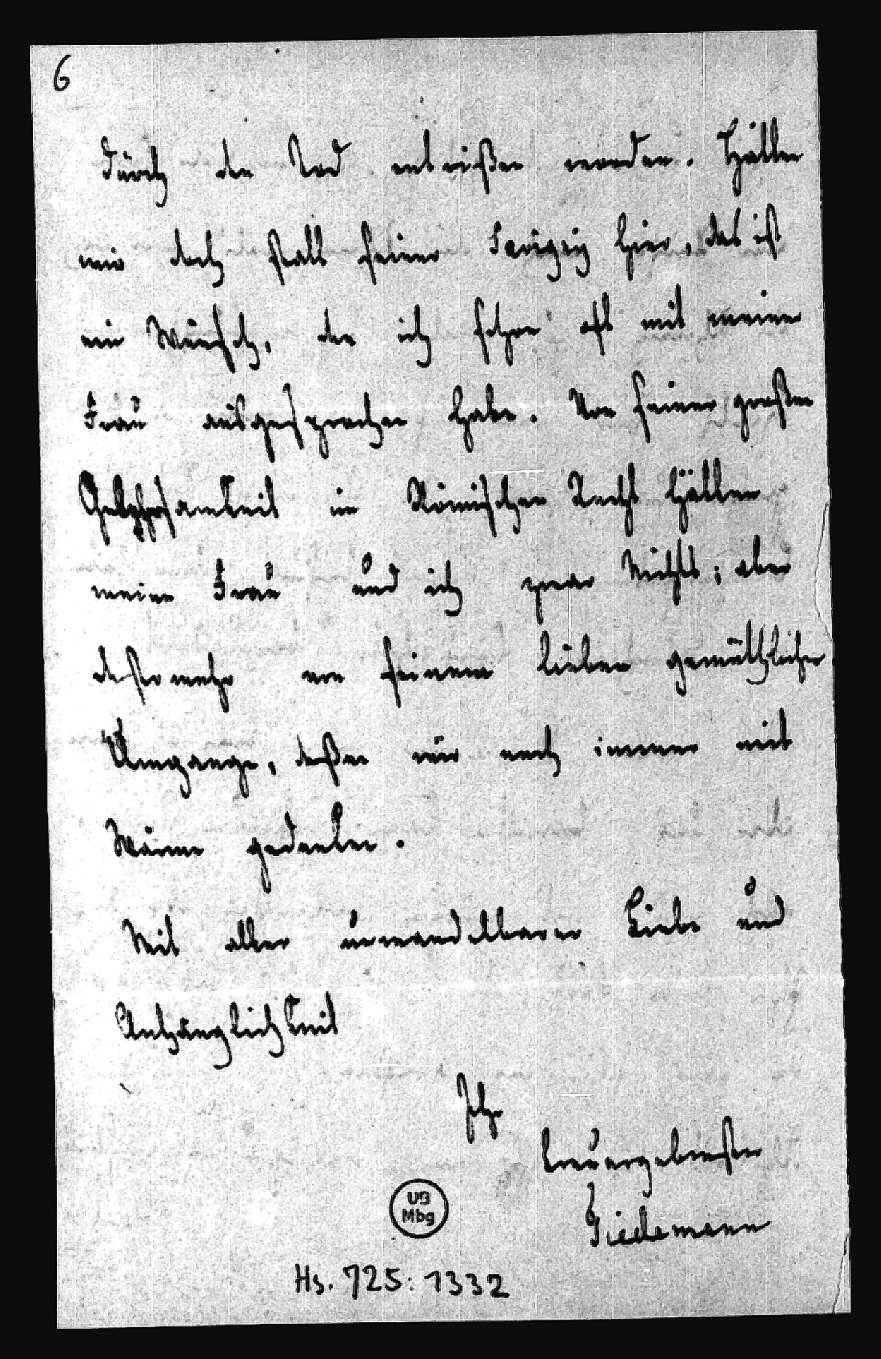 6
durch den Tod entrißen worden. Hätten
wir doch statt seiner Savigny hier, das ist
ein Wunsch, den ich schon oft mit meiner
Frau ausgesprochen habe. Von seiner großen
Gelehrsamkeit im Römischen Recht hätten
meine Frau und ich zwar Nichts; aber
desto mehr von seinem lieben gemüthlichen
Umgange, deßen wir noch immer mit
Wärme gedenken.
Mit aller unwandelbarer Liebe und
Anhänglichkeit
Ihr
treuergebenster
Tiedemann
UB
Mbg
Hs. 725: 1332